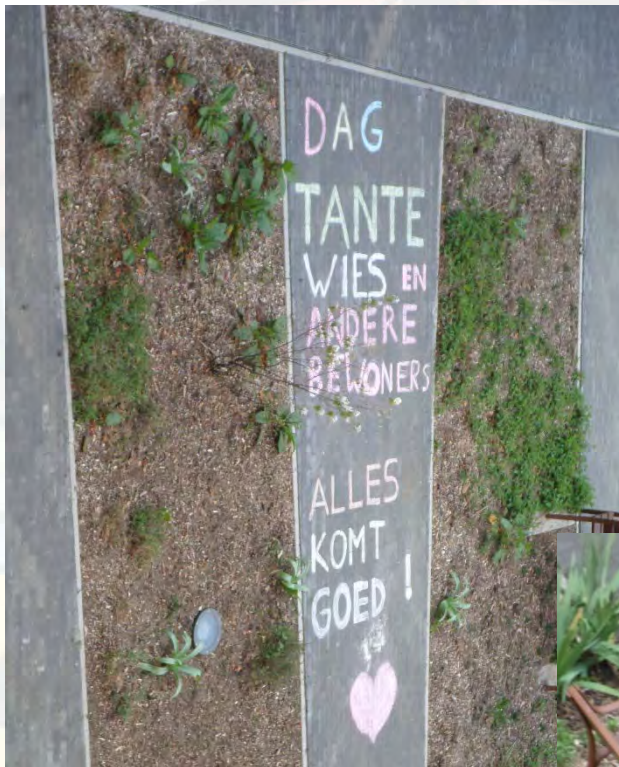 DAG
TANTE
WIES EN
ANDERE
BEWONERS
ALLES
KOMT
GOED !